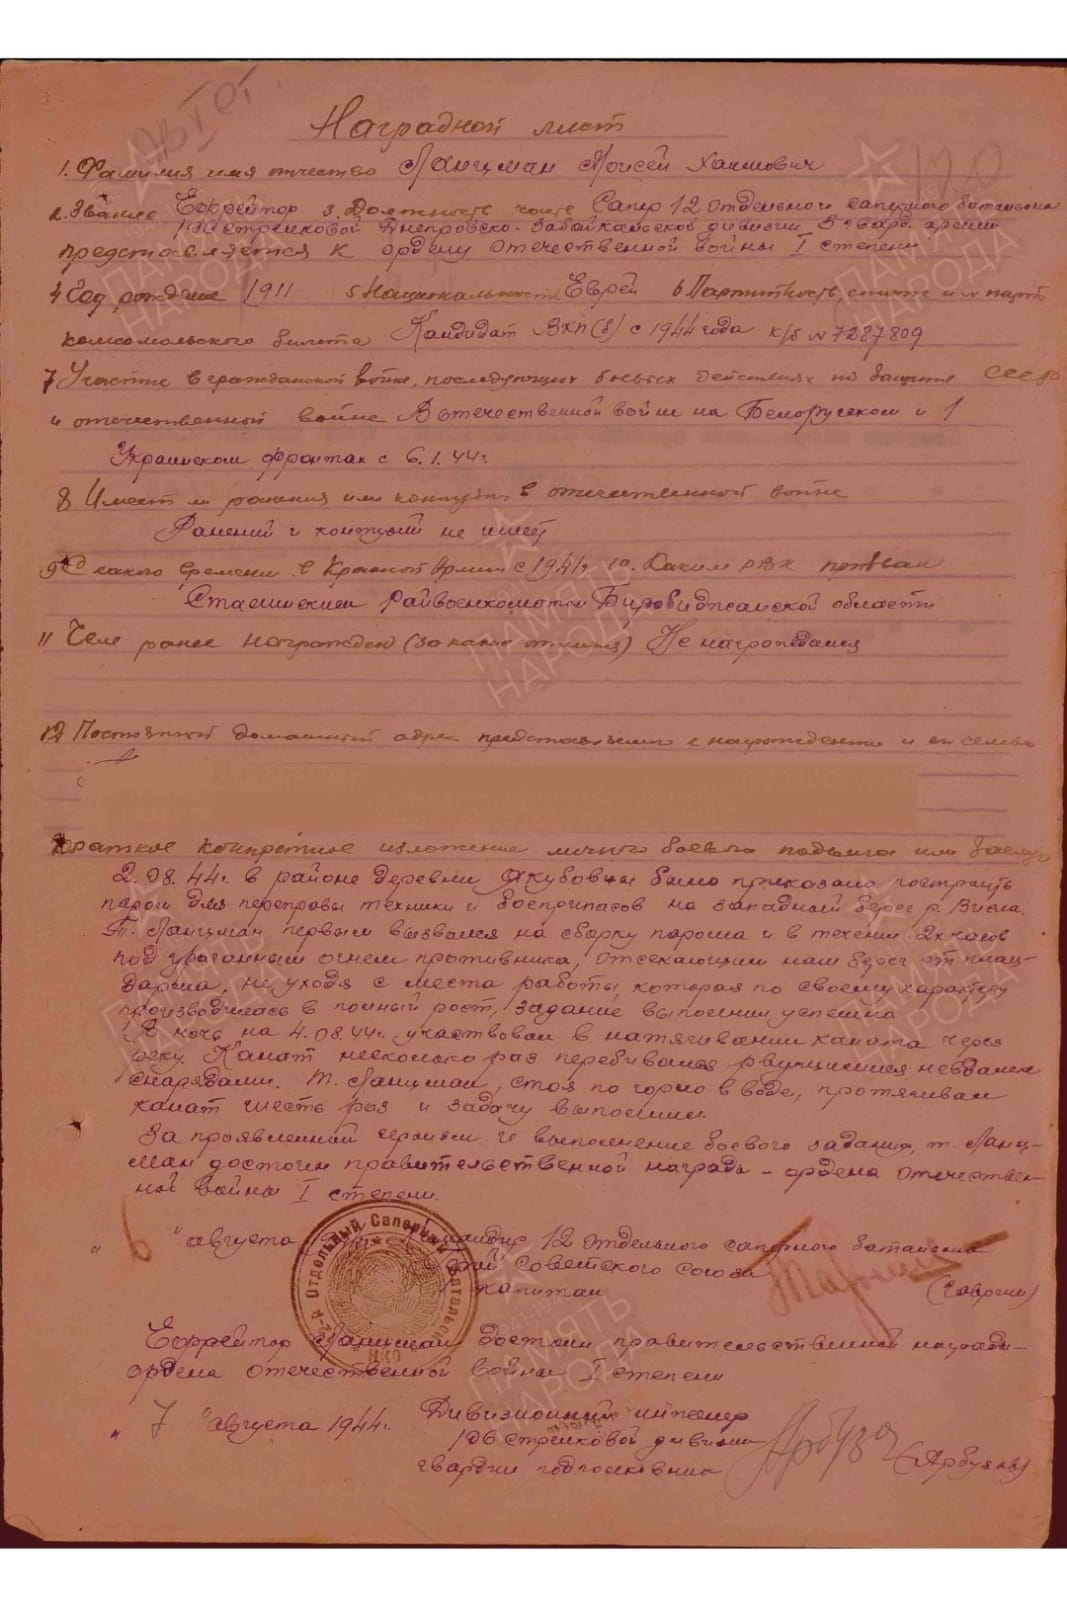 Наградной лист
1. Фамилия имя отчество Ланцман Моисей Хаимович
2. Звание Ефрейтор 3. Должность часть Сапер 12 отдельного саперного батальона
106 стрелковой Днепровско-Забайкальской дивизии 3 гвард. армии
представляется к ордену отечественной войны I степени
4 Год рождение 1911 5 Национальность Еврей 6 Партитность, стаж и № парт
комсомольского билета Кандидат ВКП(б) с 1944 года к/б № 7287809
7 Участие в гражданской войне, последующих боевых действиях по защите СССР
и отечественной войне В отечественной войне на Белорусском и 1
Украинском фронтах с 6.1.44г.
8 Имеет ли ранения или контузии в отечественной войне
Ранений и контузий не имеет
9 С какого времени в Красной Армии с 1941г 10. Каким РВК призван
райвоенкоматом Биробиджанской области
11 Чем ранее награжден (за какие отличия) Не награждался
12 Постоянный домашний адрес представляемого к награждению и его семьи
Краткое конкретное изложение личного боевого подвига или заслуг
2.08.44г. в районе деревни Якубовицы было приказано построить
паром для переправы техники и боеприпасов на западный берег р. Висла.
Т. Ланцман первым вызвался на сборку парома и в течении 2х часов
под ураганным огнем противника, отсекающим наш берег от плац-
дарма, не уходя с места работы, которая по своему характеру
производилась в полный рост, задание выполнил успешно
В ночь на 4.08.44г. участвовал в натягивании каната через
реку. Канат несколько раз перебивался рвущимися невдалеке
снарядами. Т. Ланцман, стоя по горло в воде, протягивал
канат шесть раз и задачу выполнил.
За проявленный героизм и выполнение боевого задания, т. Ланц-
ман достоин правительственной награды - ордена отечествен-
ной войны I степени.
" 6 " августа Командир 12 отдельного саперного батальона
Герой советского союза
капитан (Гаврилин)
Отдельный Саперный Батальон
НКО
Ефрейтор Ланцман достоин правительственной награды-
ордена отечественной войны I степени
" 7 " августа 1944г. Дивизионный инженер
106 стрелковой дивизии
гвардии подполковник Арбузов (Арбузов)
ПАМЯТЬ НАРОДА
ПАМЯТЬ НАРОДА
ПАМЯТЬ НАРОДА
ПАМЯТЬ НАРОДА
ПАМЯТЬ НАРОДА
ПАМЯТЬ НАРОДА